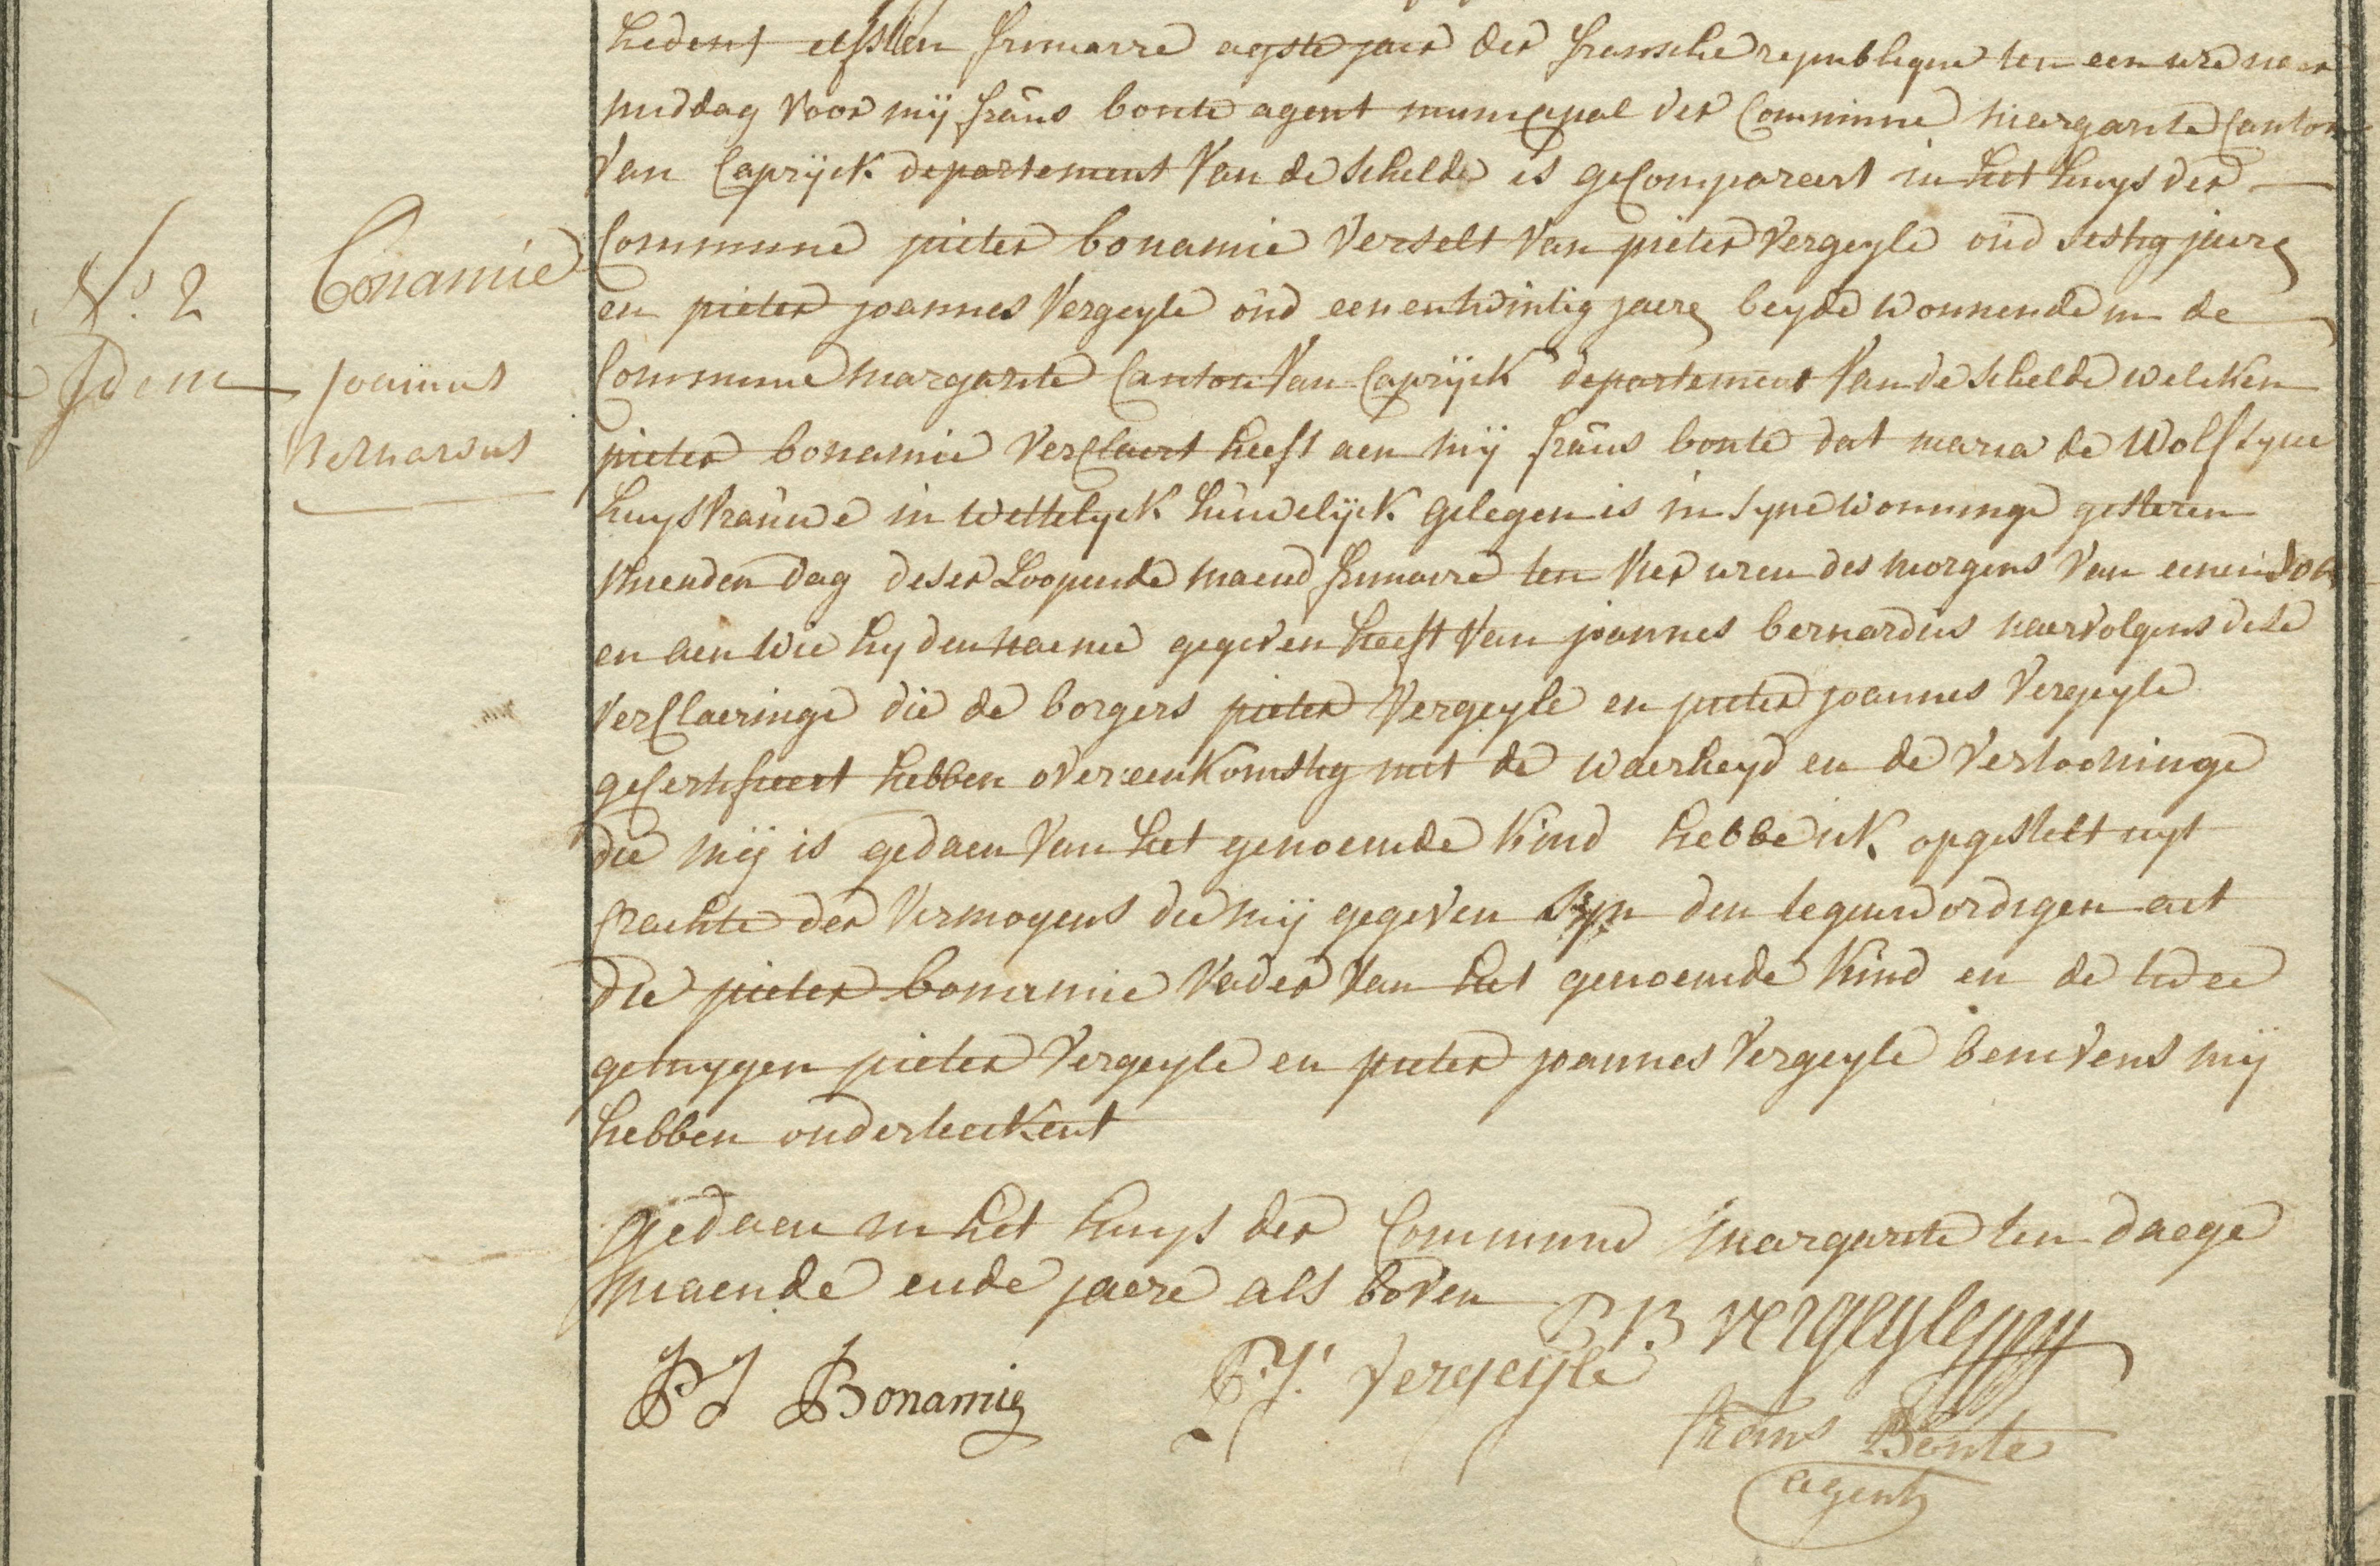 N.o 2
Idem
Bonamie
joannes
Bernardus
hedent elfsten frimarre agste jaer der fransche republique ten een ure naer
middag voor mij frans bonte agent municipal der Commune margarite Canton
van Caprijck departement van de schelde is geCompareert in het huys der
Commune pieter bonamie verselt van pieter vergeyle oud sestig jaere
en pieter joannes vergeyle oud een en twintig jaere beyde wonnende in de
Commune margarite Canton van Caprijck departement van de schelde welcken
pieter bonamie verClaert heeft aen mij frans bonte dat maria de Wolf syne
huysvrauwe in wettelyck huwelijck gelegen is in syne wonninge gisteren
thienden dag deser Loopende maend frimaire ten vier uren des morgens van eenen son
en aen wie hy den naeme gegeven heeft van joannes bernardus naervolgens dese
verClaeringe die de borgers pieter vergeyle en pieter joannes vergeyle
geCertifieert hebben over een komstig met de waerheyd en de vertooninge
die mij is gedaen van het genoemde kind hebbe ick opgestelt uyt
crachte der vermogens die mij gegeven syn den tegenwordigen act
die pieter bonamie vader van het genoemde kind en de twee
getuygen pieter vergeyle en pieter joannes vergeyle benevens mij
hebben onderteekent
gedaen in het huys der Commune margarite ten daege
maende ende jaere als boven
P B vergeyle
P J Bonamie
P.J. vergeijle
frans Bonte
agent